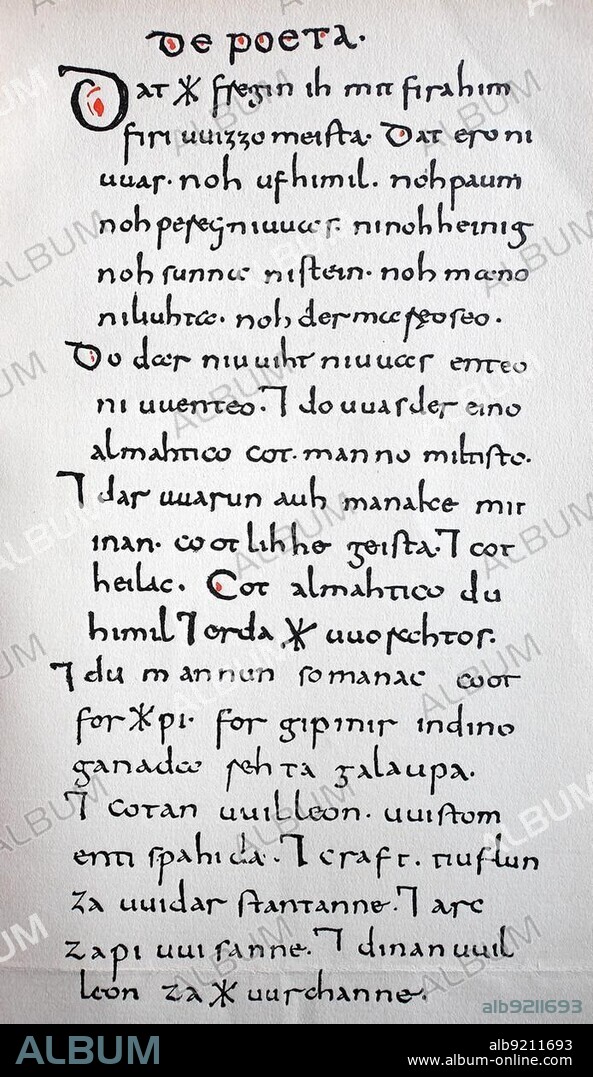 De poeta.
Dat ᚷ fregin ih mit firahim
firi uuizzo meista. Dat ero ni
uuas. noh ufhimil. noh paum
noh peregniuuas. ninohheinig
noh sunna nistein. noh mano
niliuhta. noh der mareoseo.
Do dar niuuiht niuuas enteo
ni uuenteo. ⁊ do uuas der eino
almahtico cot. manno miltisto.
⁊ dar uuarun auh manake mit
inan. cootlihhe geista. ⁊ cot
heilac. Cot almahtico du
himil ⁊ erda ᚷ uuorahtos.
⁊ du mannun so manac coot
for ᚷ pi. for gipmir indino
ganada rehta galaupa.
⁊ cotan uuilleon. uuistom
enti spahida. ⁊ craft. tiuflun
za uuidar stantanne. ⁊ arc
zapi uuisanne. ⁊ dinan uuil
leon za ᚷ uurchanne.
ALBUM
alb9211693
ALBUM
alb9211693
www.album-online.com